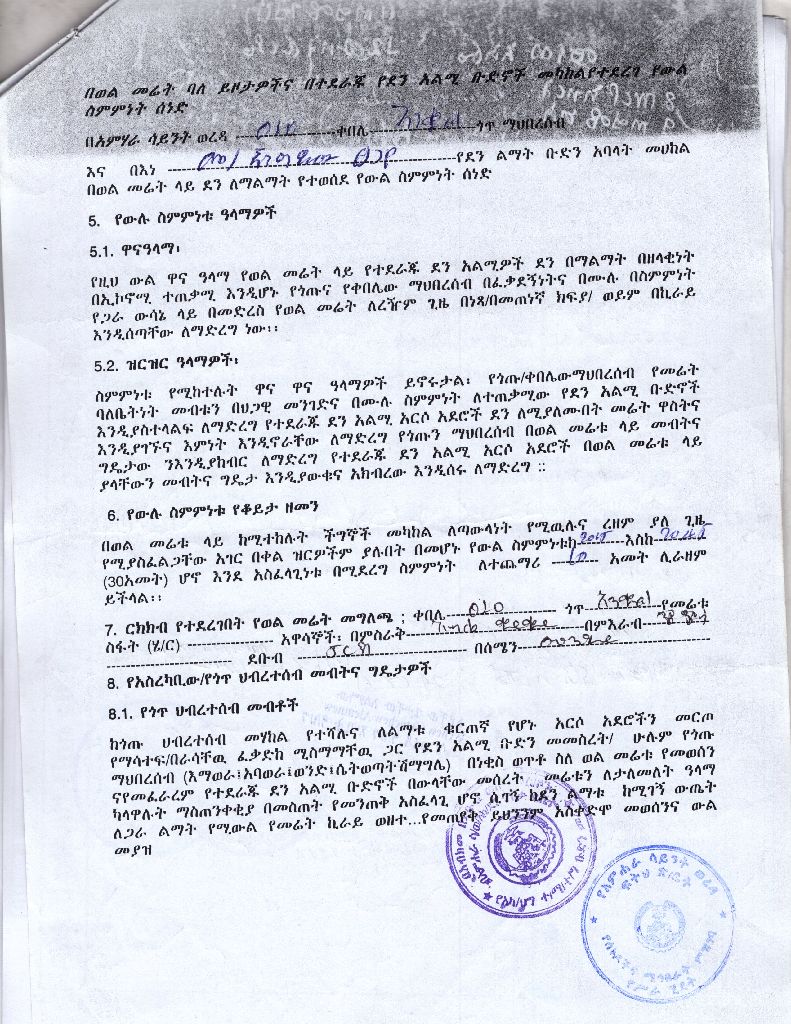 በወል መሬት ባለ ይዞታዎችና በተደራጁ የደን አልሚ ቡድኖች መካከል የተደረገ የውል
ስምምነት ሰነድ
በአምሃራ ሳይንት ወረዳ ቀበሌ ጎጥ ማህበረሰብ
እና በእነ የደን ልማት ቡድን አባላት መሀከል
በወል መሬት ላይ ደን ለማልማት የተወሰደ የውል ስምምነት ሰነድ
5. የውሉ ስምምነቱ ዓላማዎች
5.1. ዋናዓላማ፡
የዚህ ውል ዋና ዓላማ የወል መሬት ላይ የተደራጁ ደን አልሚዎች ደን በማልማት በዘላቂነት
በኢኮኖሚ ተጠቃሚ እንዲሆኑ የጎጡና የቀበሌው ማህበረሰብ በፈቃደኝነትና በሙሉ በስምምነት
የጋራ ውሳኔ ላይ በመድረስ የወል መሬት ለረዥም ጊዜ በነጻ/በመጠነኛ ክፍያ/ ወይም በኪራይ
እንዲሰጣቸው ለማድረግ ነው፡፡
5.2. ዝርዝር ዓላማዎች፡
ስምምነቱ የሚከተሉት ዋና ዋና ዓላማዎች ይኖሩታል፡ የጎጡ/ቀበሌውማህበረሰብ የመሬት
ባለቤትነት መብቱን በህጋዊ መንገድና በሙሉ ስምምነት ለተጠቃሚው የደን አልሚ ቡድኖች
እንዲያስተላልፍ ለማድረግ የተደራጁ ደን አልሚ አርሶ አደሮች ደን ለሚያለሙበት መሬት ዋስትና
እንዲያገኙና እምነት እንዲኖራቸው ለማድረግ የጎጡን ማህበረሰብ በወል መሬቱ ላይ መብትና
ግዴታው ንእንዲያከብር ለማድረግ የተደራጁ ደን አልሚ አርሶ አደሮች በወል መሬቱ ላይ
ያላቸውን መብትና ግዴታ እንዲያውቁና አክብረው እንዲሰሩ ለማድረግ ::
6. የውሉ ስምምነቱ የቆይታ ዘመን
በወል መሬቱ ላይ ከሚተከሉት ችግኞች መካከል ለጣውላነት የሚዉሉና ረዘም ያለ ጊዜ
የሚያስፈልጋቸው አገር በቀል ዝርዎችም ያሉበት በመሆኑ የውል ስምምነቱከ እስከ
(30አመት) ሆኖ እንደ አስፈላጊነቱ በሚደረግ ስምምነት ለተጨማሪ 10 አመት ሊራዘም
ይችላል፡፡
7. ርክክብ የተደረገበት የወል መሬት መግለጫ ; ቀበሌ ጎጥ የመሬቱ
ስፋት (ሄ/ር) አዋሳኞች፡ በምስራቅ በምእራብ
ደቡብ በሰሜን
8. የአስረካቢው/የጎጥ ህብረተሰብ መብትና ግዴታዎች
8.1. የጎጥ ህብረተሰብ መብቶች
ከጎጡ ህብረተሰብ መሃከል የተሻሉና ለልማቱ ቁርጠኛ የሆኑ አርሶ አደሮችን መርጦ
የማሳተፍ/በራሳቸዉ ፈቃድከ ሚስማማቸዉ ጋር የደን አልሚ ቡድን መመስረት/ ሁሉም የጎጡ
ማህበረሰብ (እማወራ፣አባወራ፣ወንድ፣ሴትወጣት፣ሽማግሌ) በነቂስ ወጥቶ ስለ ወል መሬቱ የመወሰን
ናየመፈራረም የተደራጁ ደን አልሚ ቡድኖች በውላቸው መሰረት መሬቱን ለታለመለት ዓላማ
ካላዋሉት ማስጠንቀቂያ በመስጠት የመንጠቅ አስፈላጊ ሆኖ ሲገኝ ከደን ልማቱ ከሚገኝ ውጤት
ለጋራ ልማት የሚውል የመሬት ኪራይ ወዘተ...የመጠየቅ ይህንንም አስቀድሞ መወሰንና ውል
መያዝ
የአምሐራ ሳይንት ወረዳ
ፍትህ ጽ/ቤት